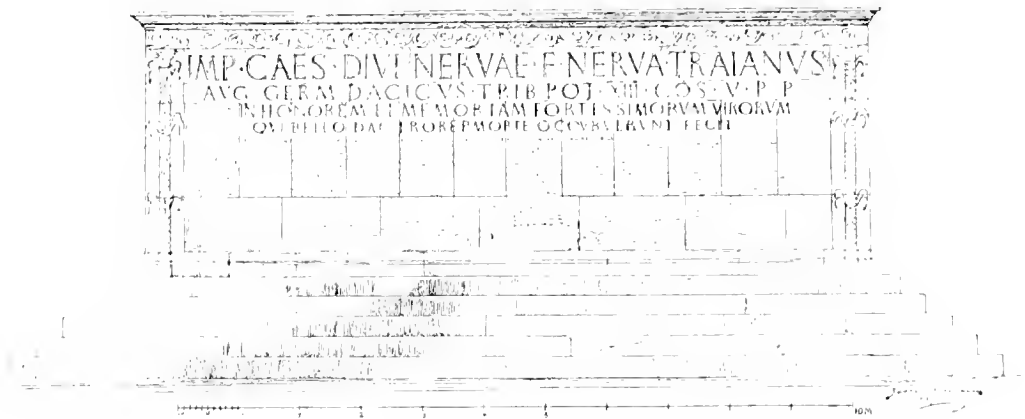 IMP·CAES·DIVI NERVAE·F·NERVA TRAIANVS
AVG GERM DACICVS·TRIB POT·XIII·COS·V·P P
IN HONOREM ET MEMORIAM FORTISSIMORVM VIRORVM
QVI BELLO DAC MORTE OCCVBVERVNT FECIT
10M